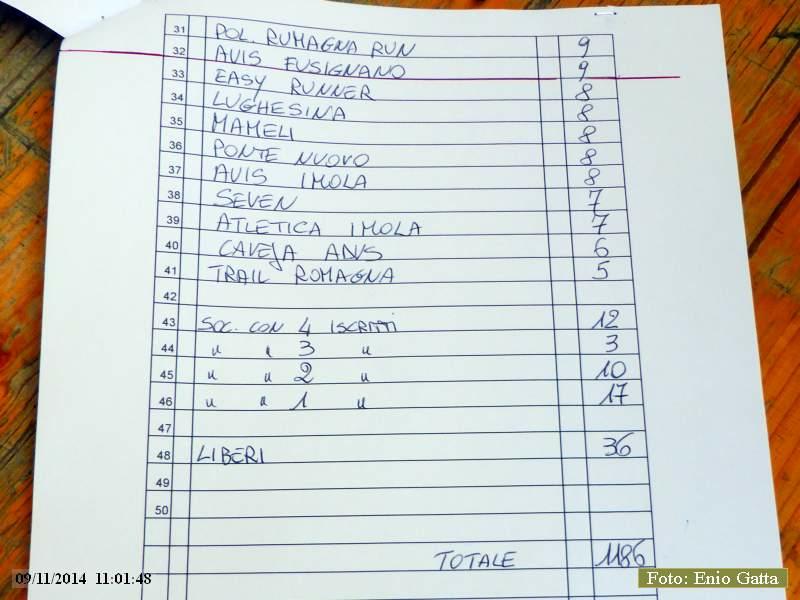 31 POL. RUMAGNA RUN 9
32 AVIS FUSIGNANO 9
33 EASY RUNNER 8
34 LUGHESINA 8
35 MAMELI 8
36 PONTE NUOVO 8
37 AVIS IMOLA 8
38 SEVEN 7
39 ATLETICA IMOLA 7
40 CAVEJA 6
41 TRAIL ROMAGNA 5
42
43 SOC. CON 4 ISCRITTI 12
44 " " 3 " 3
45 " " 2 " 10
46 " " 1 " 17
47
48 LIBERI 36
49
50
TOTALE 1186
09/11/2014 11:01:48
Foto: Enio Gatta